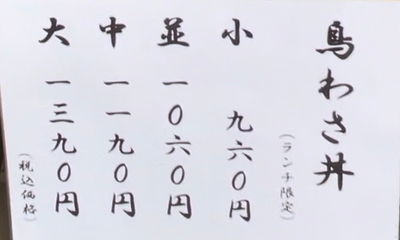 鳥わさ丼
(ランチ限定)
小 九六0円
並 一0六0円
中 一一九0円
大 一三九0円
(税込価格)